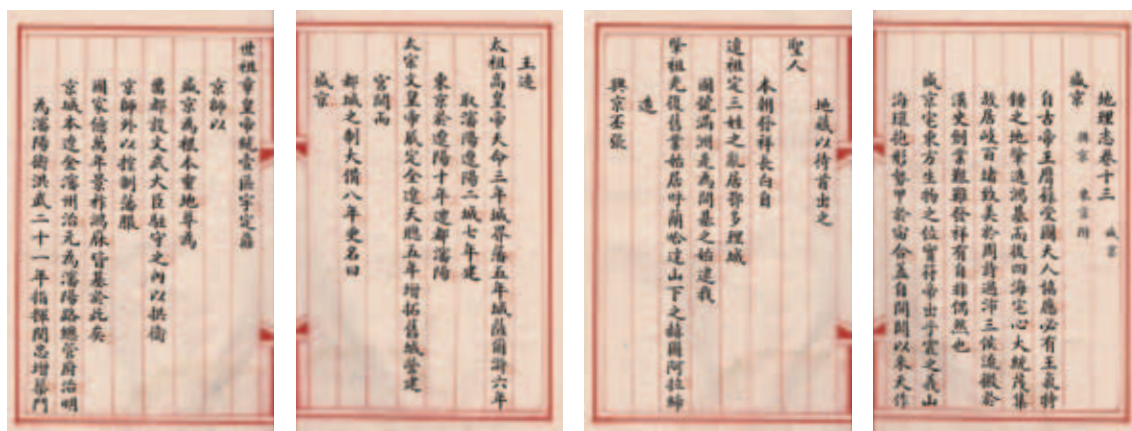 地理志卷十三 盛京
盛京 興京 東京附
自古帝王膺籙受圖天人協應必有王氣特
鍾之地肇造鴻基而後四海宅心大統茂集
故居岐百堵致美於周詩過沛三侯流徽於
漢史創業艱難發祥有自非偶然也
盛京宅東方生物之位寶符帝出乎震之義山
海環抱形勢甲於寰合蓋自開闢以來天作
地藏以待首出之
聖人
本朝發祥長白自
遠祖定三姓之亂居鄂多理城
國號滿洲是為開基之始逮我
肇祖光復舊業始居呼蘭哈達山下之赫圖阿拉
遠
興京丕張
王迹
太祖高皇帝天命三年城界藩五年城薩爾滸六年
取瀋陽遼陽二城七年建
東京於遼陽十年遷都瀋陽
太宗文皇帝底定全遼天聰五年增拓舊城營建
宮闕兩
都城之制大備八年更名曰
盛京
世祖章皇帝統壹區宇定鼎
京師以
盛京為根本重地尊為
舊都設文武大臣駐守之內以拱衛
京師外以控制藩服
國家億萬年景祚鴻庥皆基於此矣
京城本遼金瀋州治元為瀋陽路總管府治明
為瀋陽衛洪武二十一年指揮閔忠增築門